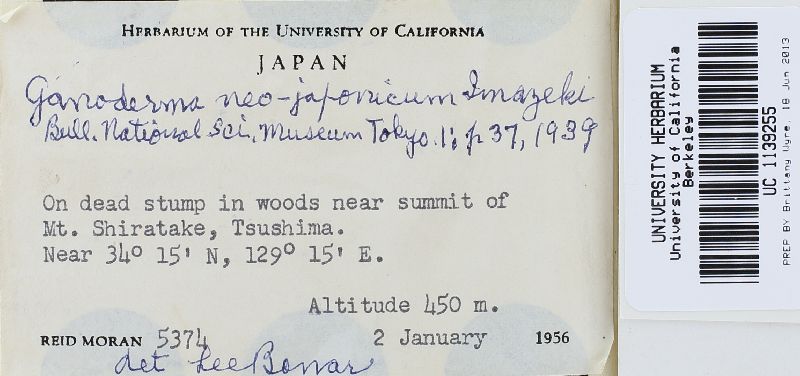 HERBARIUM OF THE UNIVERSITY OF CALIFORNIA
JAPAN
Ganoderma neo-japonicum Imazeki
Bull. National Sci. Museum Tokyo. 1: p 37, 1939
On dead stump in woods near summit of
Mt. Shiratake, Tsushima.
Near 34º 15' N, 129º 15' E.
Altitude 450 m.
REID MORAN 5374 2 January 1956
det Lee Bonar
UNIVERSITY HERBARIUM
University of California
Berkeley
UC 1139255
PREP BY Brittany Uyre, 18 Jun 2013